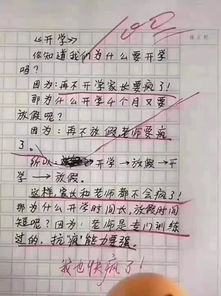 《开学》
你知道我们为什么要开学
吗?
因为:再不开学家长要疯了!
那为什么开学4个月又要
放假呢?
因为:再不放假老师要疯
了.
所以 开学→放假→开
学→放假.
这样家长和老师都不会疯了!
那为什么开学时间长,放假时间
短呢?因为:老师是专门训练
过的,抗"疯"能力要强.
我也快疯了!